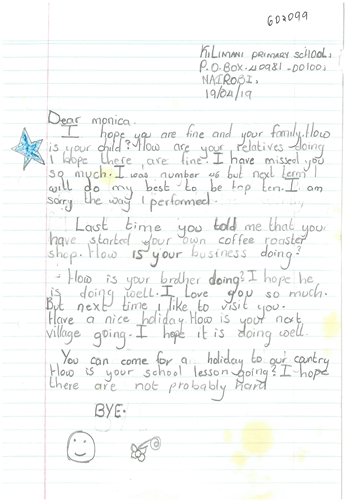 602099
KILIMANI PRIMARY SCHOOL,
P.O-BOX-40981-00100,
NAIROBI.
19/04/19
Dear monica.
I hope you are fine and your family. How
is your child? How are your relatives doing
I hope there are fine. I have missed you
so much. I was number 46 but next term I
will do my best to be top ten. I am
sorry the way I performed.
Last time you told me that you
have started your own coffee roaster
shop. How is your business doing?
How is your brother doing? I hope he
is doing well. I Love you so much.
But next time I like to visit you.
Have a nice holiday How is your next
village going. I hope it is doing well.
You can come for a holiday to our country
How is your school lesson going? I hope
there are not probably hard
BYE.